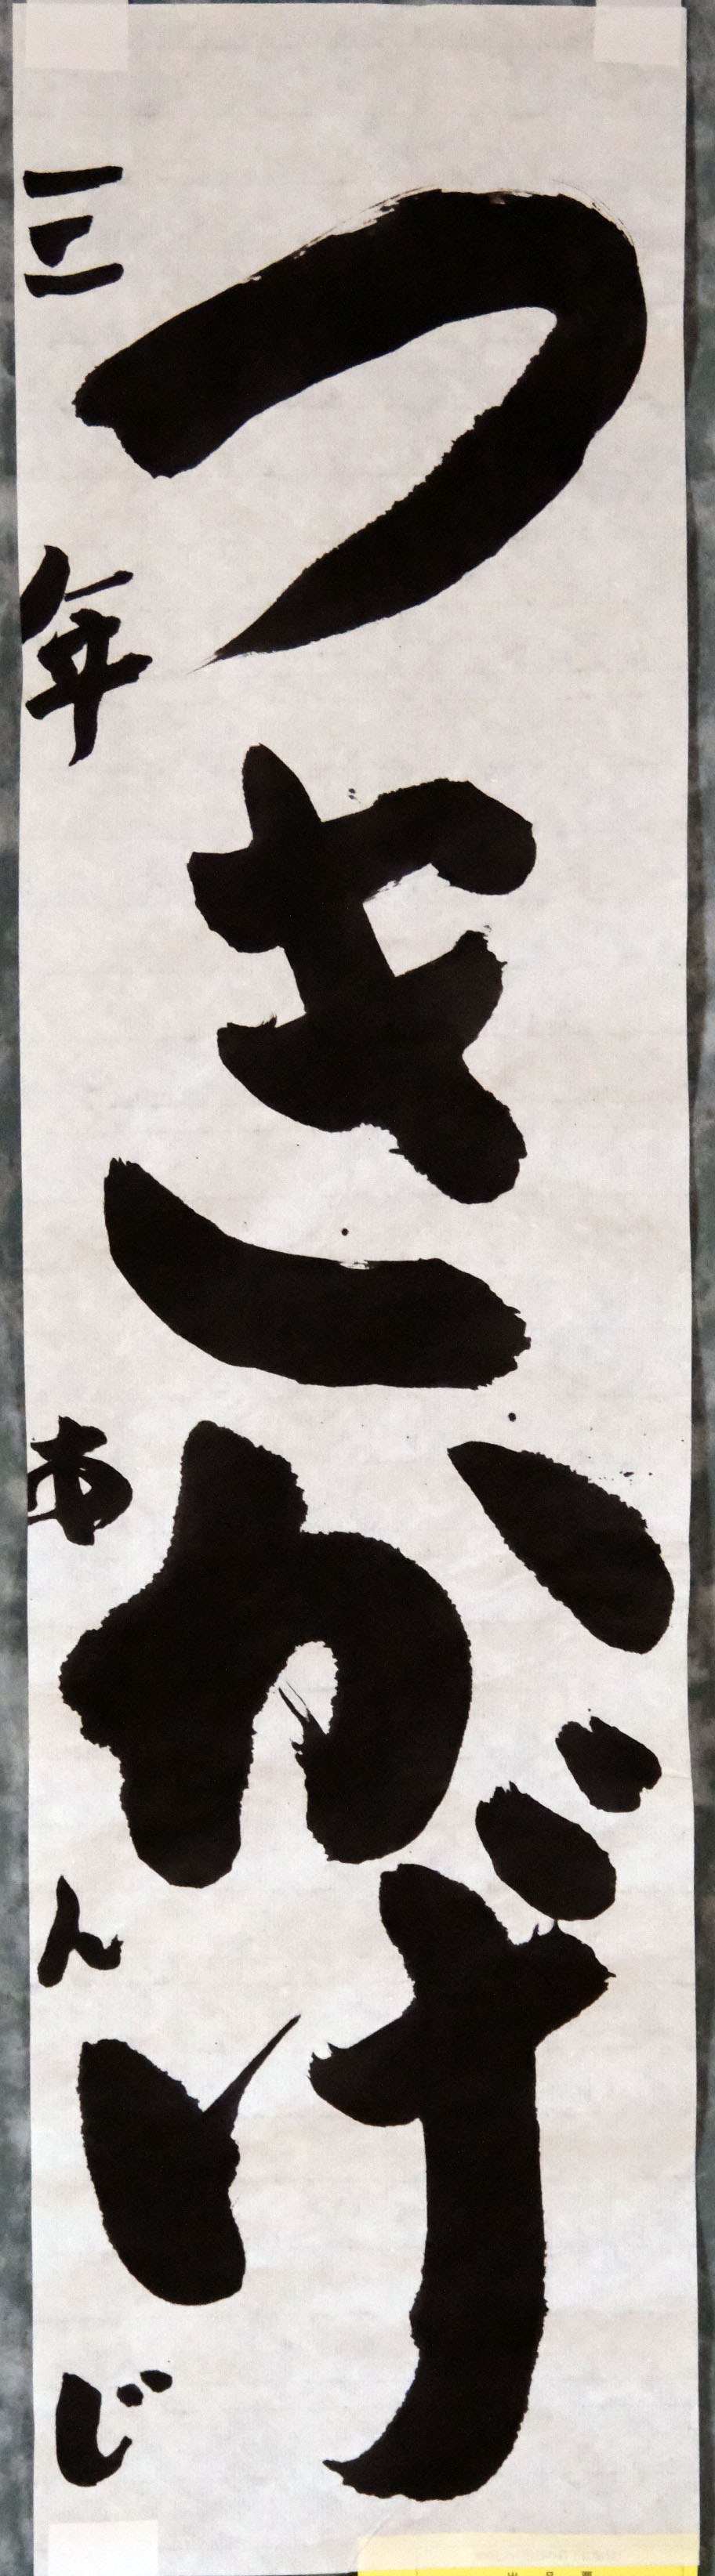 つきかげ
三年 あんじ